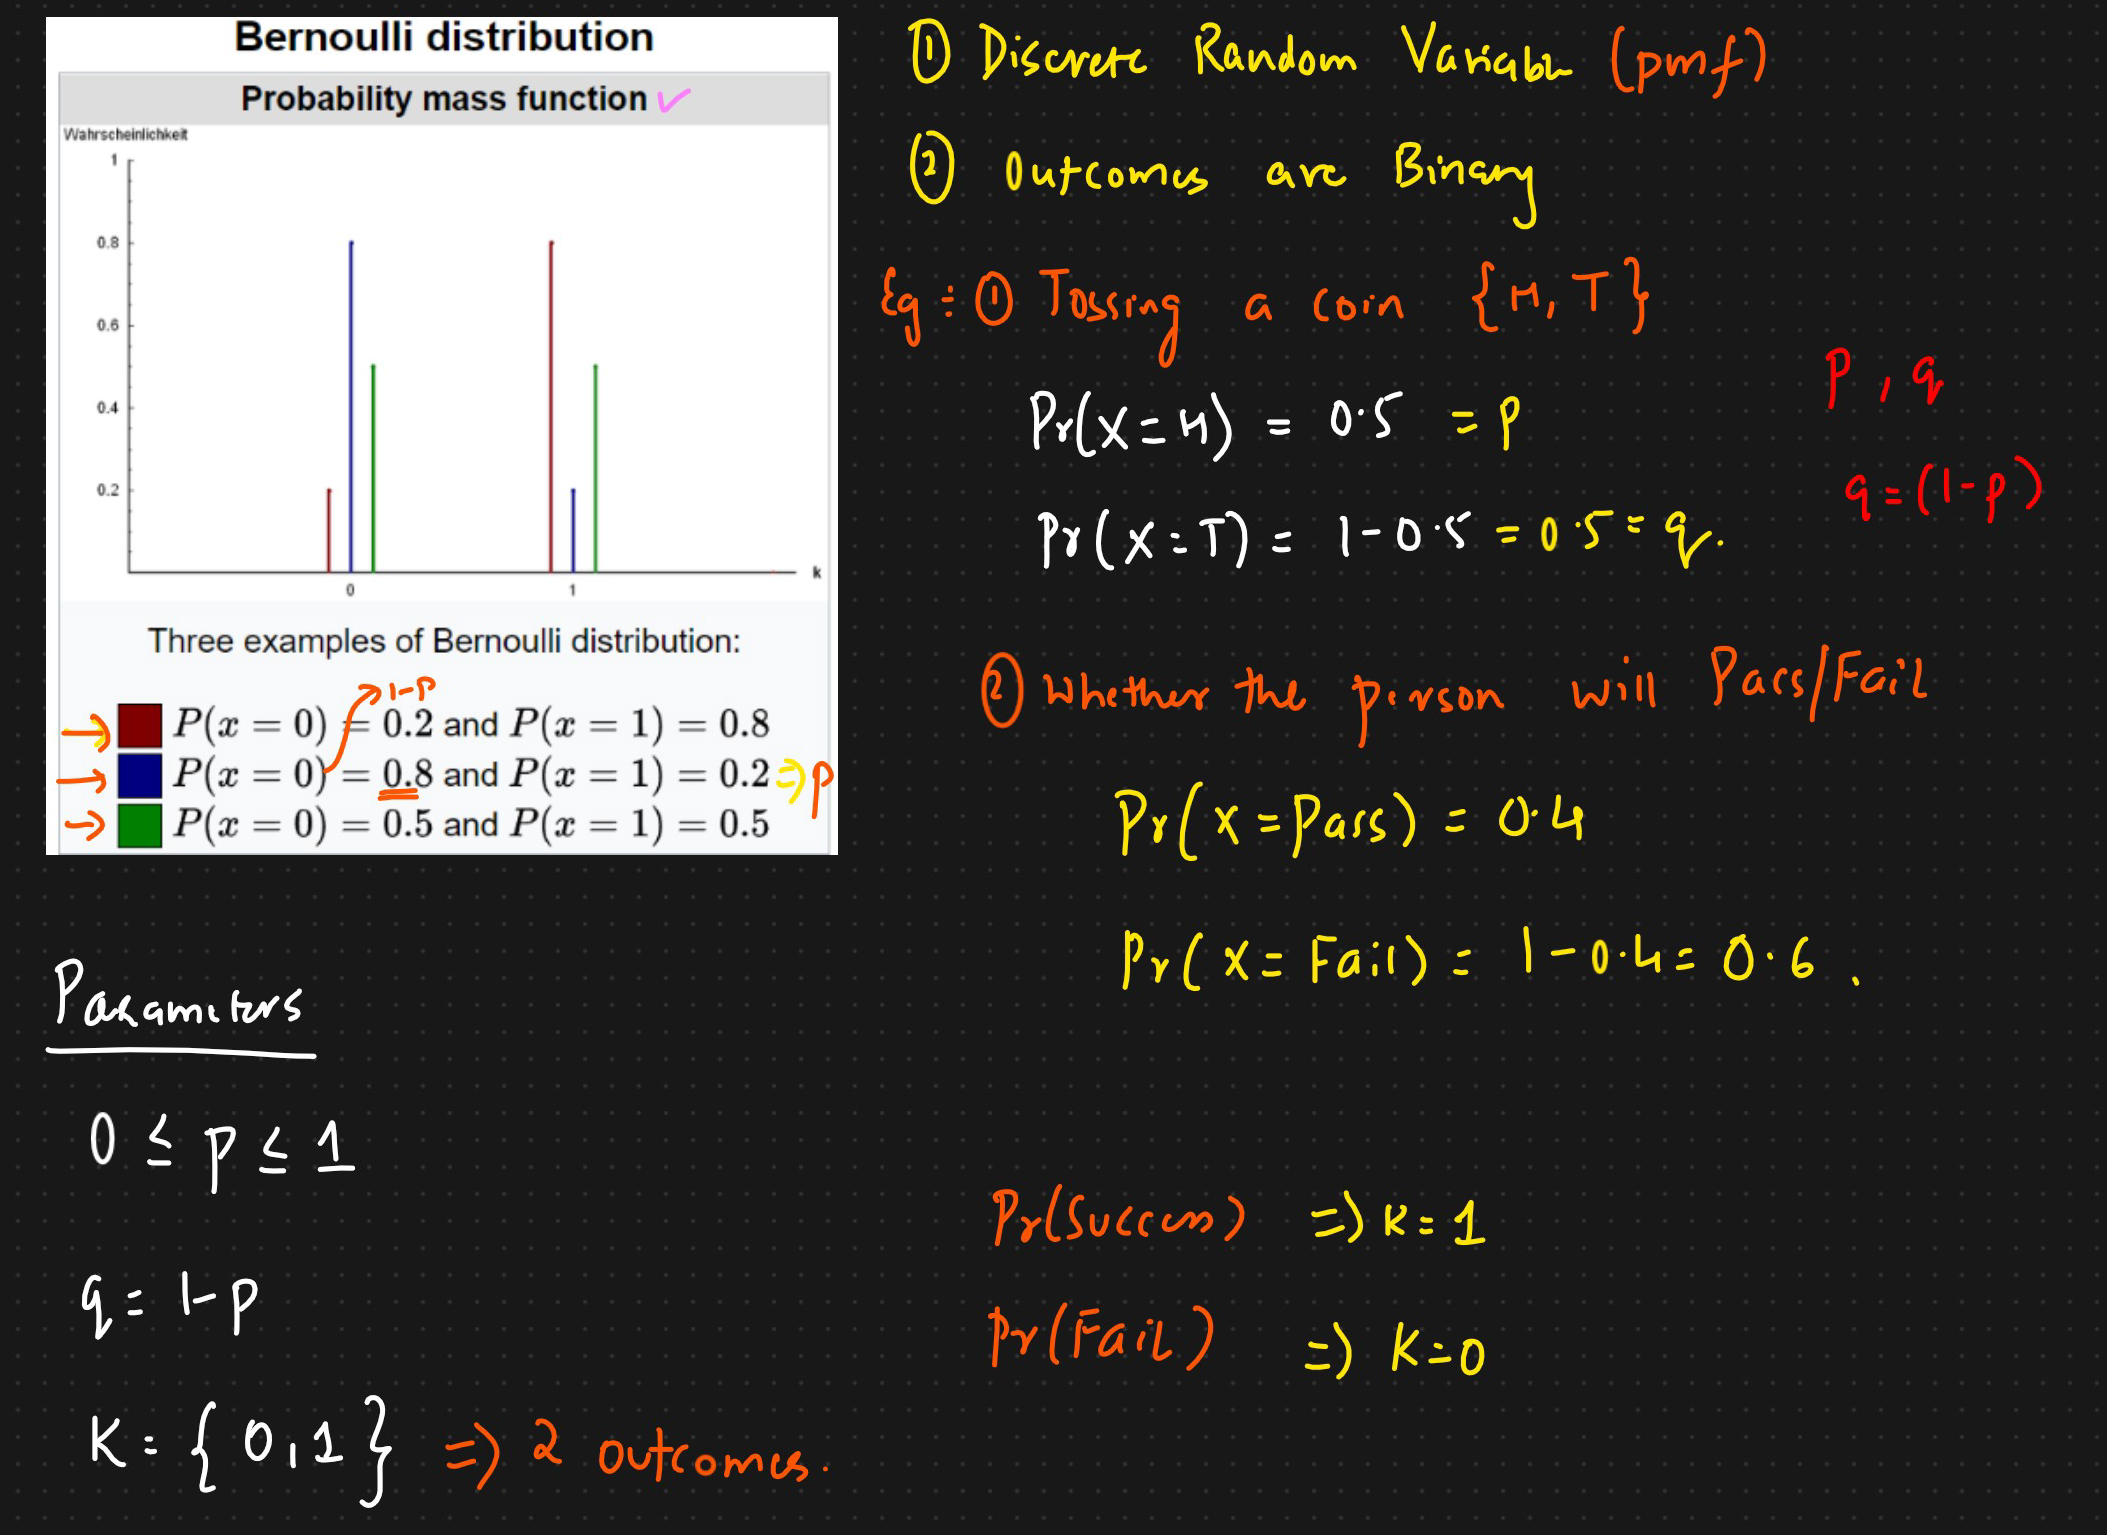 Bernoulli distribution
Probability mass function ✓
Wahrscheinlichkeit
1
0.8
0.6
0.4
0.2
0 1 k
Three examples of Bernoulli distribution:
1-p
P(x = 0) = 0.2 and P(x = 1) = 0.8
P(x = 0) = 0.8 and P(x = 1) = 0.2 => p
P(x = 0) = 0.5 and P(x = 1) = 0.5
Parameters
0 ≤ p ≤ 1
q = 1-p
K = {0,1} => 2 outcomes.
① Discrete Random Variable (pmf)
② Outcomes are Binary
Eg: ① Tossing a coin {H, T}
Pr(X=H) = 0.5 = p
Pr(X=T) = 1-0.5 = 0.5 = q.
p, q
q=(1-p)
② Whether the person will Pass/Fail
Pr(X=Pass) = 0.4
Pr(X=Fail) = 1-0.4 = 0.6.
Pr(Success) => K=1
Pr(Fail) => K=0